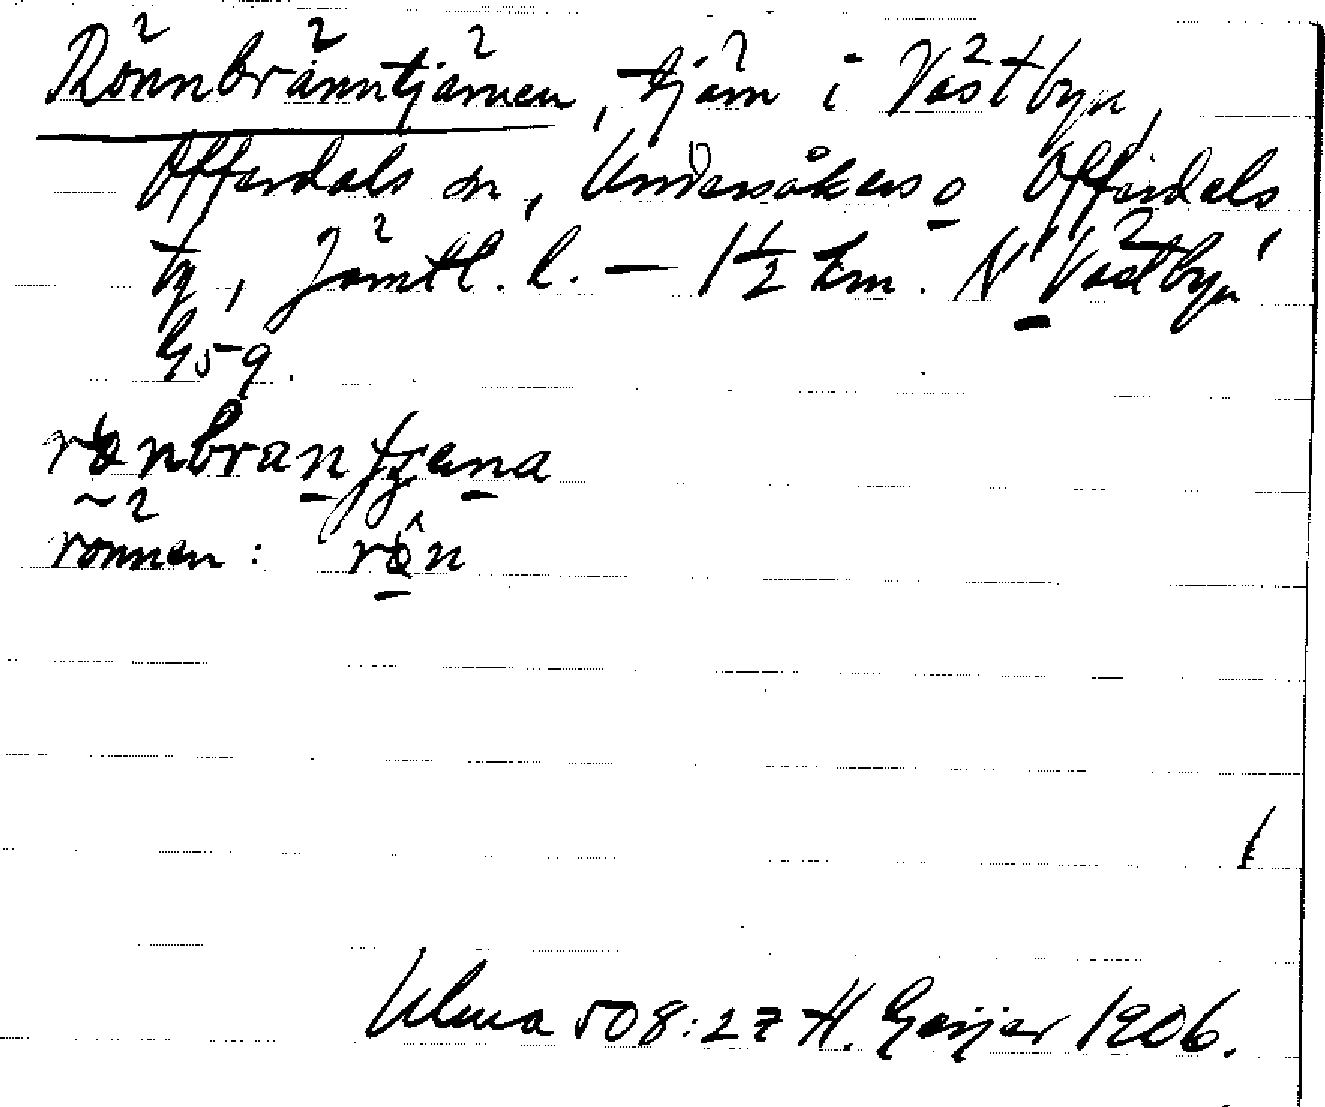 Rönnbränntjärnen, tjärn i Västbyn,
Offerdals sn, Undersåkers o Offerdals
tg, Jämtl. l. – 1½ km. N Västbyn
G59.
rönnen: rôn
Ulma 508:27 H. Geijer 1906.